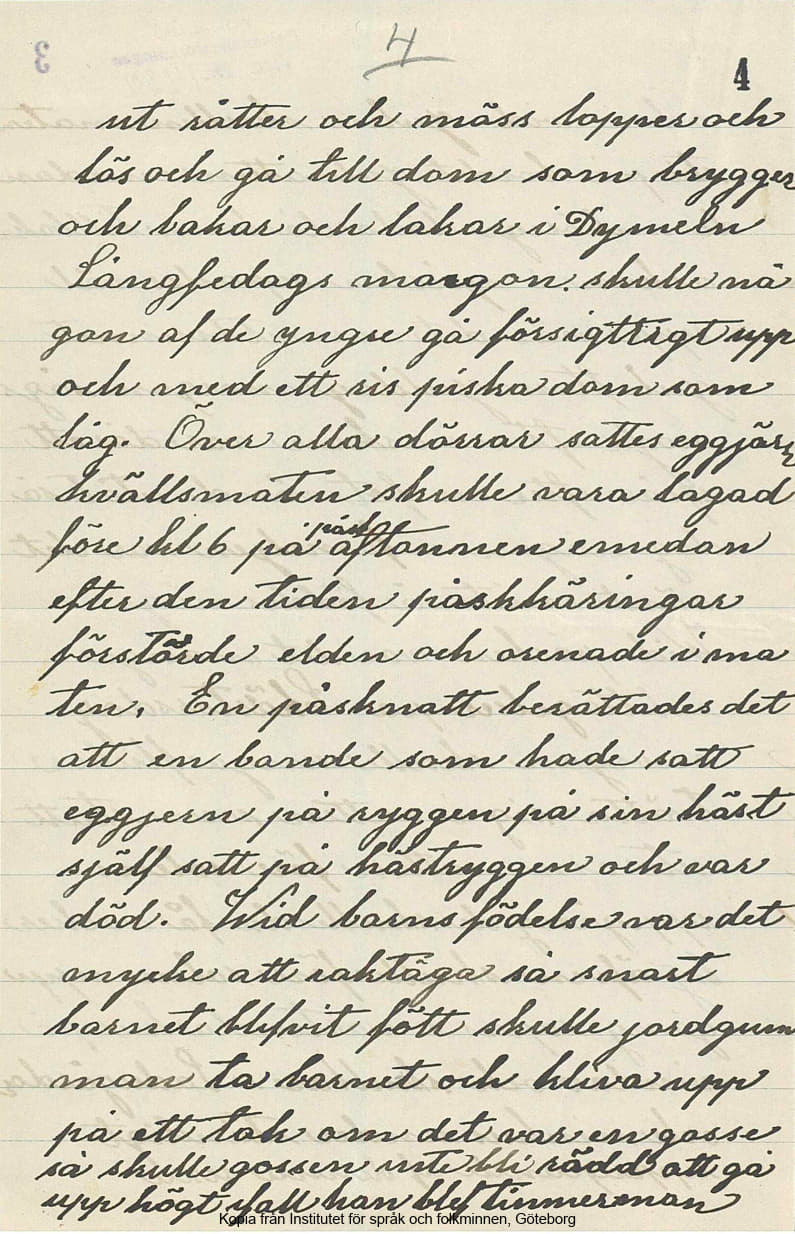 4
3
4
ut råtter och mäss lopper och
lös och gå till dom som brygger
och bakar och lakar i Dymeln
Långfedags margon. skulle nå
gon af de yngre gå försigttigt upp
och med ett ris piska dom som
låg. Över alla dörrar sattes eggjärn
kvällsmaten skulle vara lagad
före kl 6 på påsk aftonnen emedan
efter den tiden påskkäringar
förstörde elden och orenade i ma
ten, En påsknatt berättades det
att en bande som hade satt
eggjern på ryggen på sin häst
själf satt på hästryggen och var
död. Wid barnsfödelse var det
mycke att iaktäga så snart
barnet blifvit fött skulle jordgum
man ta barnet och kliva upp
på ett tak om det var en gosse
så skulle gossen inte bli rädd att gå
upp högt ifall han blef timmerman
Kopia från Institutet för språk och folkminnen, Göteborg